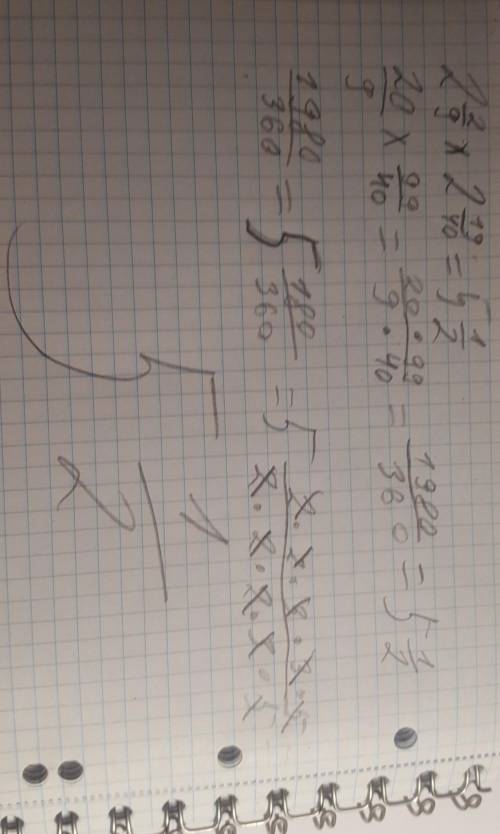 2 2/9 x 2 19/40 = 5 1/2
20/9 x 99/40 = 20·99/9·40 = 1980/360 = 5 1/2
1980/360 = 5 180/360 = 5
5 1/2